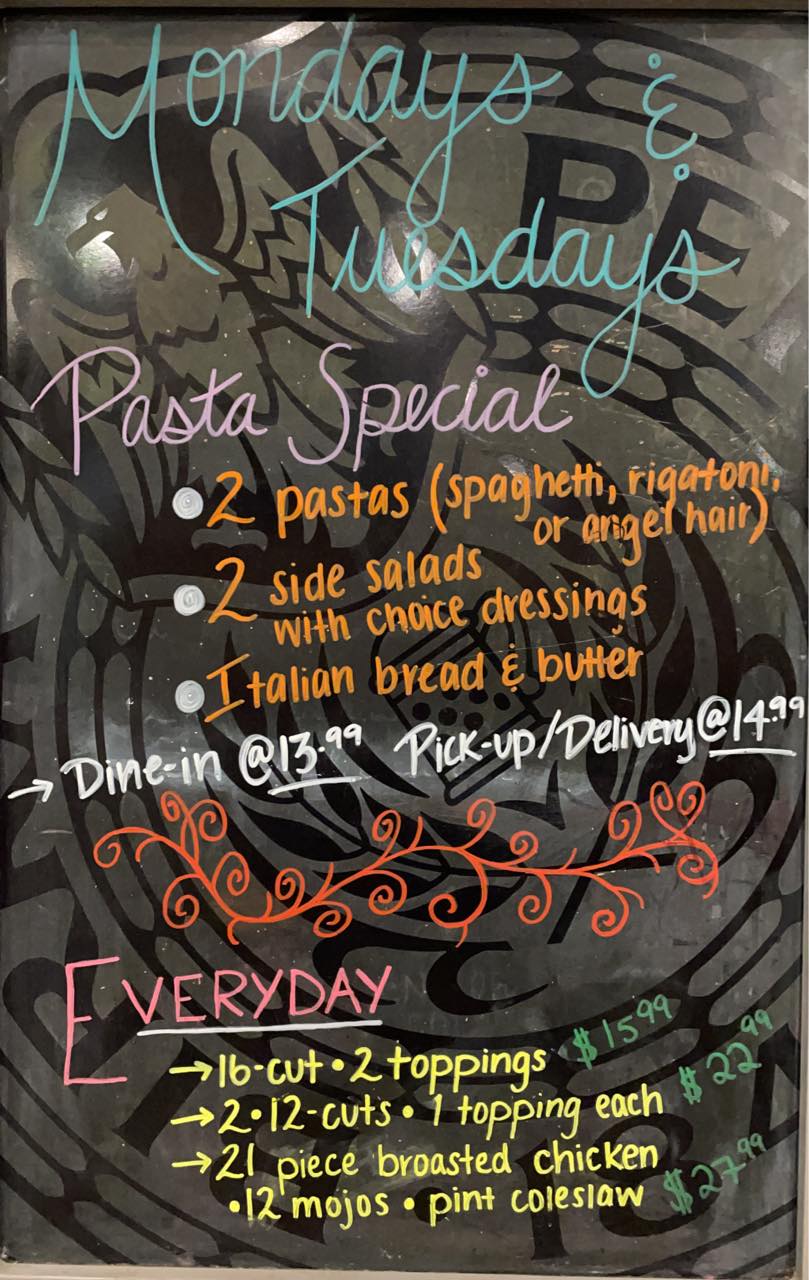 Mondays &
Tuesdays
Pasta Special
2 pastas (spaghetti, rigatoni,
or angel hair)
2 side salads
with choice dressings
Italian bread & butter
→ Dine-in @13.99 Pick-up/Delivery @14.99
EVERYDAY
→16-cut • 2 toppings $15.99
→2•12-cuts • 1 topping each $22.99
→21 piece broasted chicken
•12 mojos • pint coleslaw $27.99